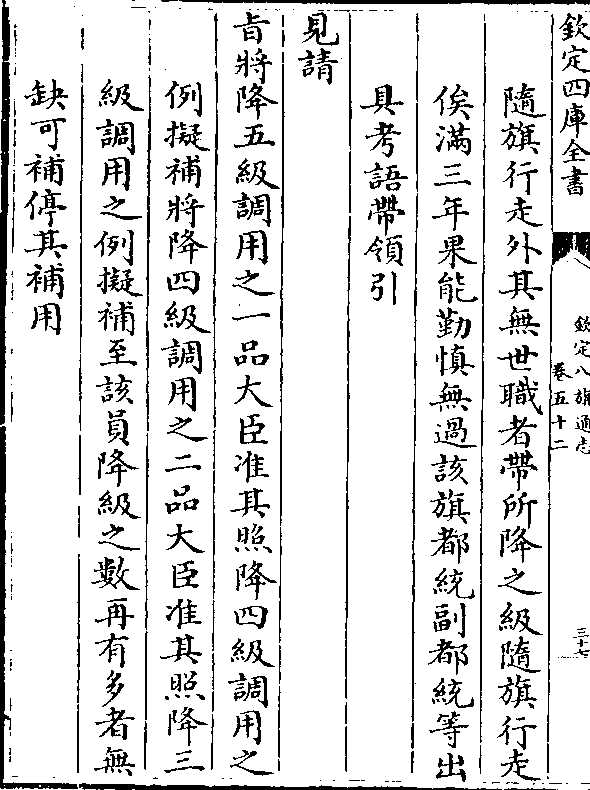 欽定四庫全書
欽定八旗通志
卷五十二
三十七
隨旗行走外其無世職者帶所降之級隨旗行走
俟滿三年果能勤慎無過該旗都統副都統等出
具考語帶領引
見請
旨將降五級調用之一品大臣准其照降四級調用之
例擬補將降四級調用之二品大臣准其照降三
級調用之例擬補至該員降級之數再有多者無
缺可補停其補用